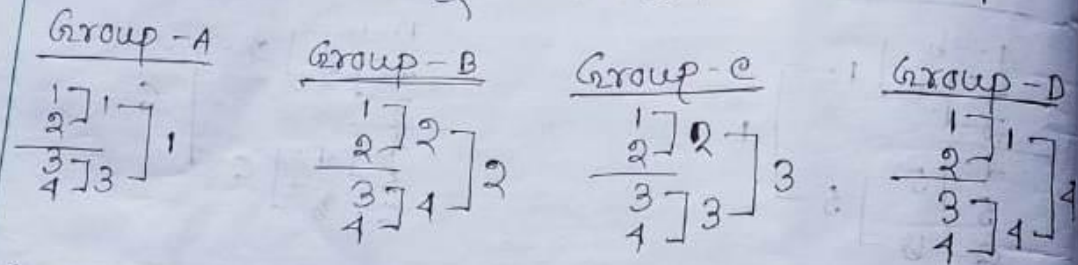 Group - A
1
2 ] 1
3
4 ] 3
] 1
Group - B
1
2 ] 2
3
4 ] 4
] 2
Group - C
1
2 ] 2
3
4 ] 3
] 3
Group - D
1
2 ] 1
3
4 ] 4
] 4